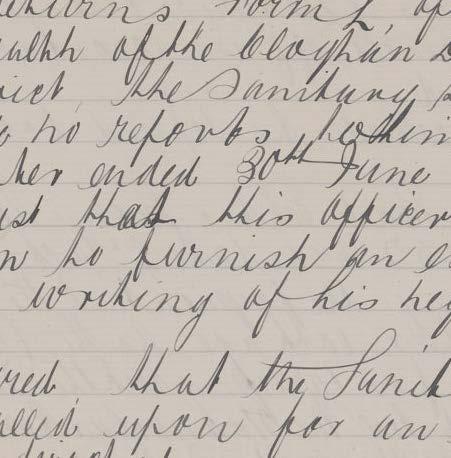 Returns Form L of
ealth of the Cloghan D
rict, the Sanitary S
to no reports
ter ended 30th June
st that this officer
n to furnish an e
writing of his neg
red, that the Sanit
alled upon for an